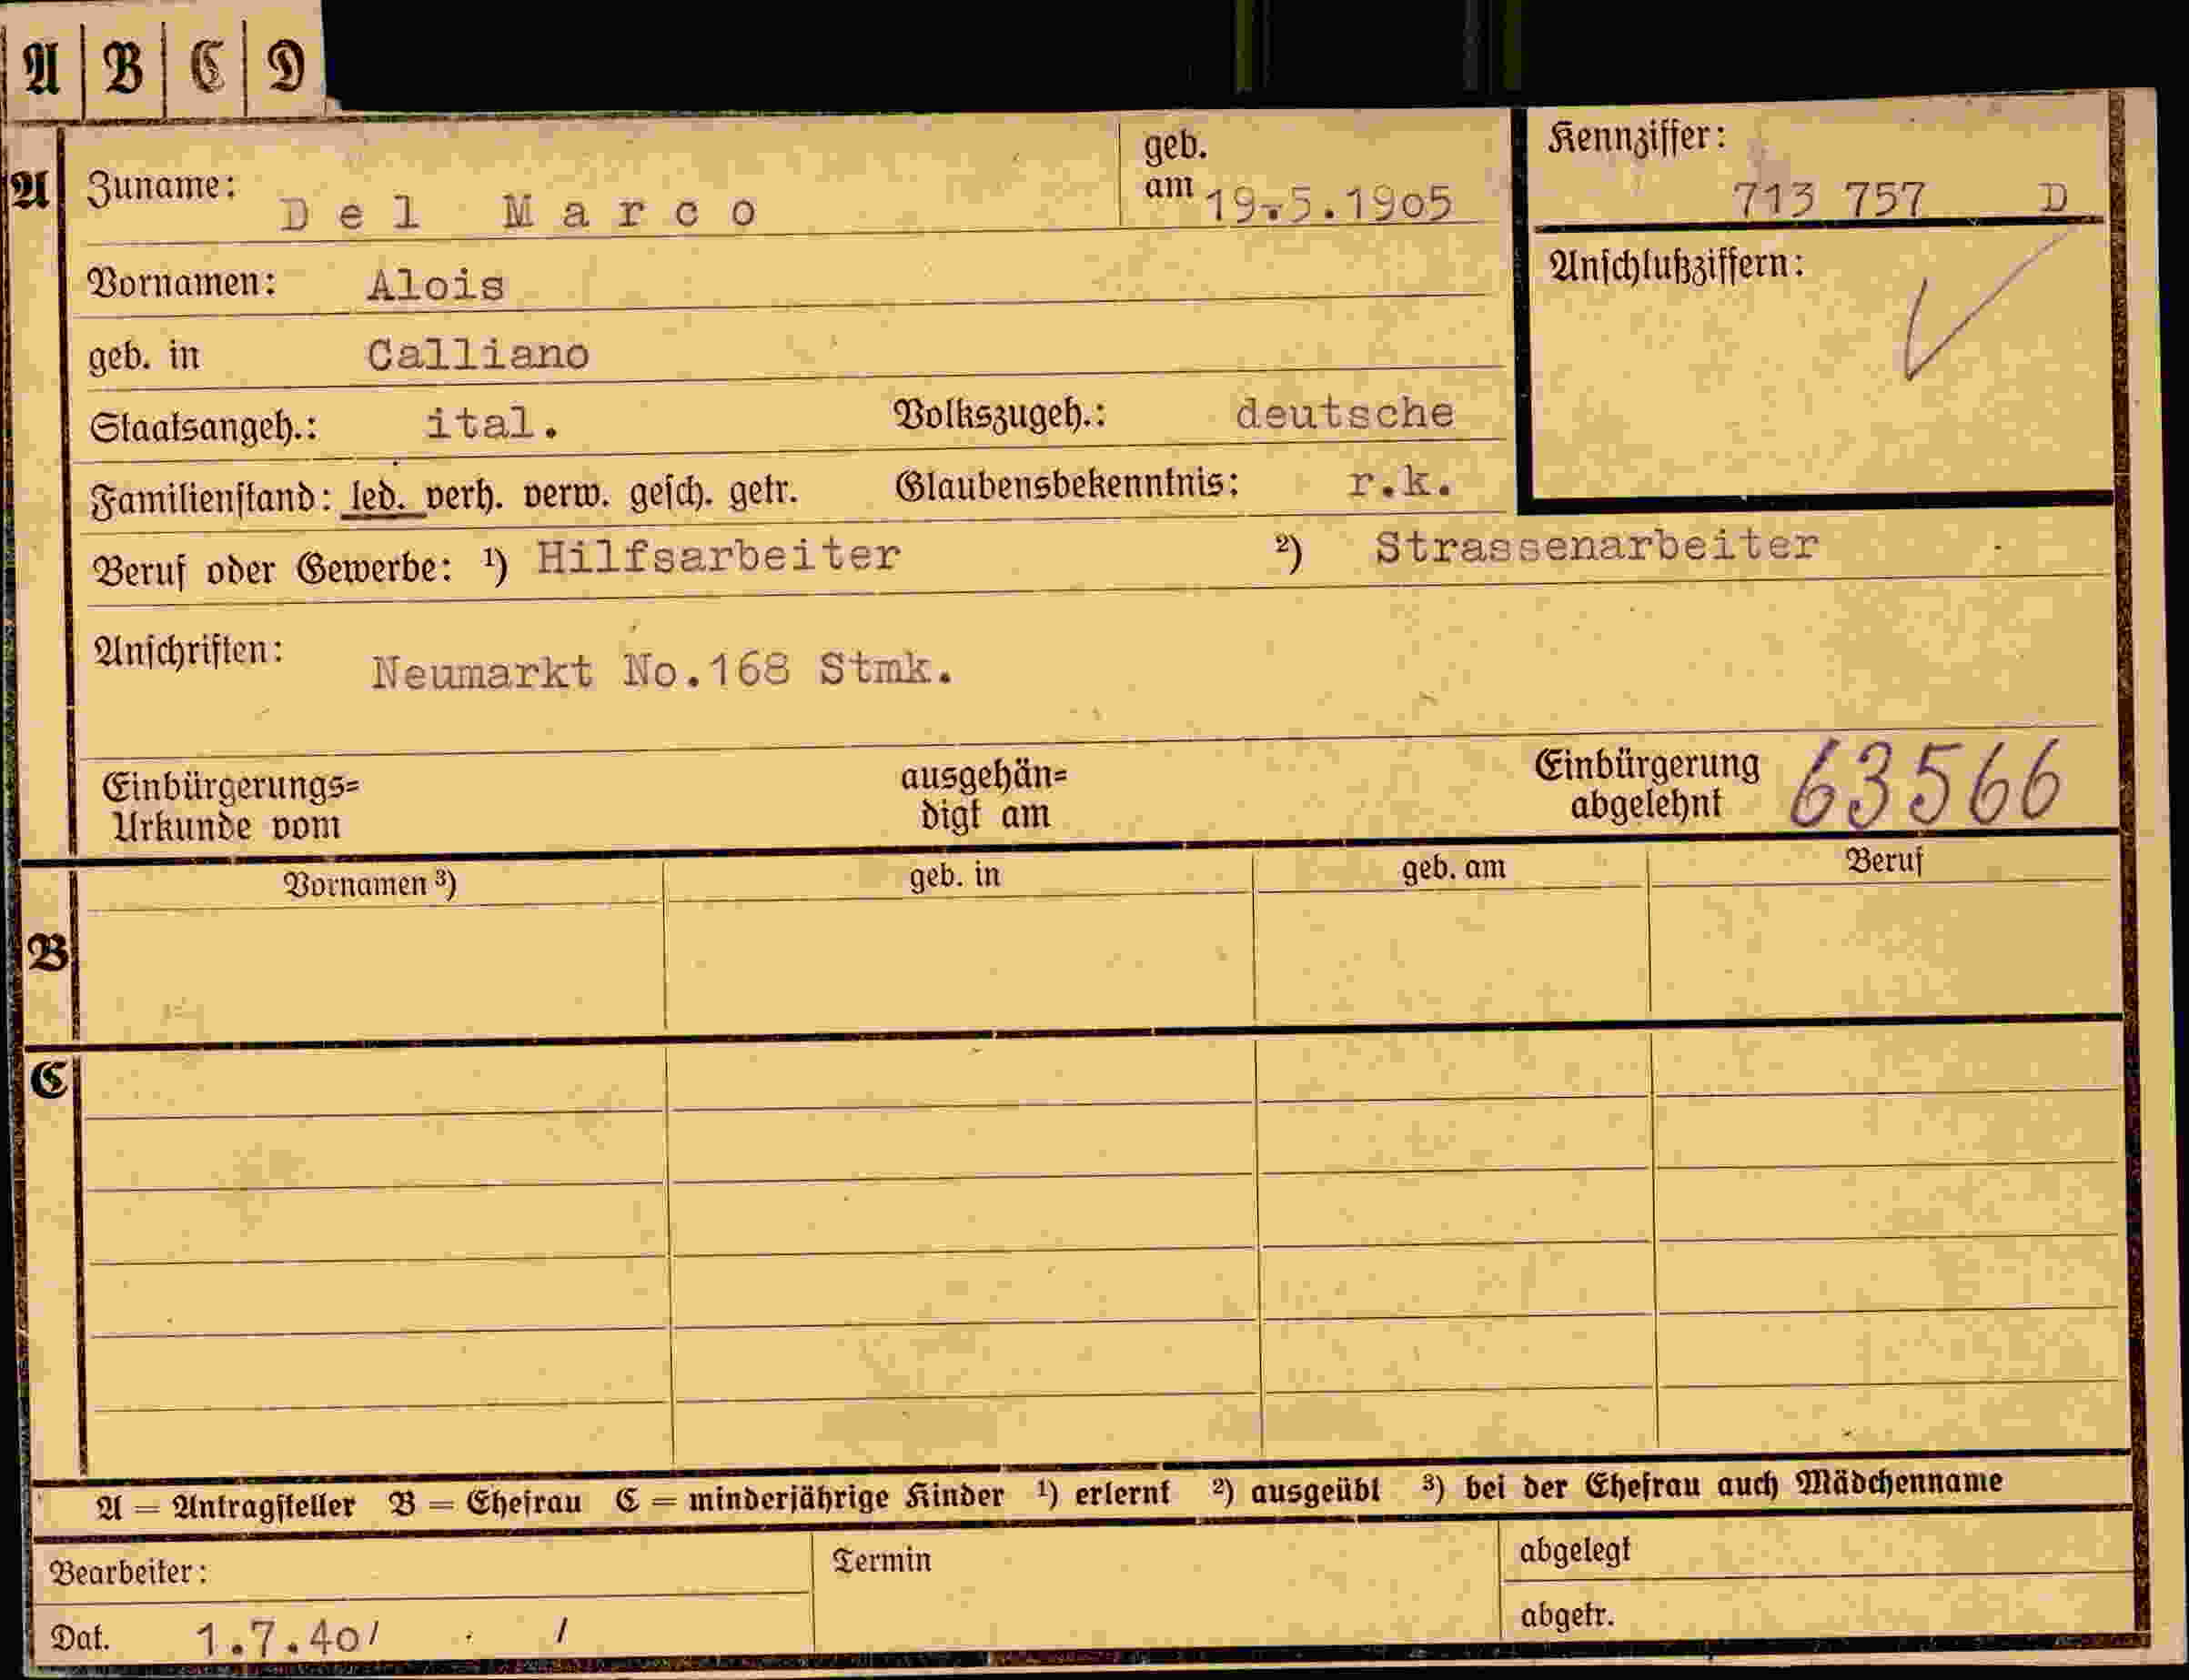 A B C D
A
Zuname: Del Marco geb. am 19.5.1905 Kennziffer: 713 757 D
Vornamen: Alois Anschlußziffern:
geb. in Calliano
Staatsangeh.: ital. Volkszugeh.: deutsche
Familienstand: led. verh. verw. gesch. getr. Glaubensbekenntnis: r.k.
Beruf oder Gewerbe: ¹) Hilfsarbeiter ²) Strassenarbeiter
Anschriften: Neumarkt No.168 Stmk.
Einbürgerungs= ausgehän= Einbürgerung 63566
Urkunde vom digt am abgelehnt
Vornamen ³) geb. in geb. am Beruf
B
C
A = Antragsteller B = Ehefrau C = minderjährige Kinder ¹) erlernt ²) ausgeübt ³) bei der Ehefrau auch Mädchenname
Bearbeiter: Termin abgelegt
Dat. 1.7.40/ / abgetr.